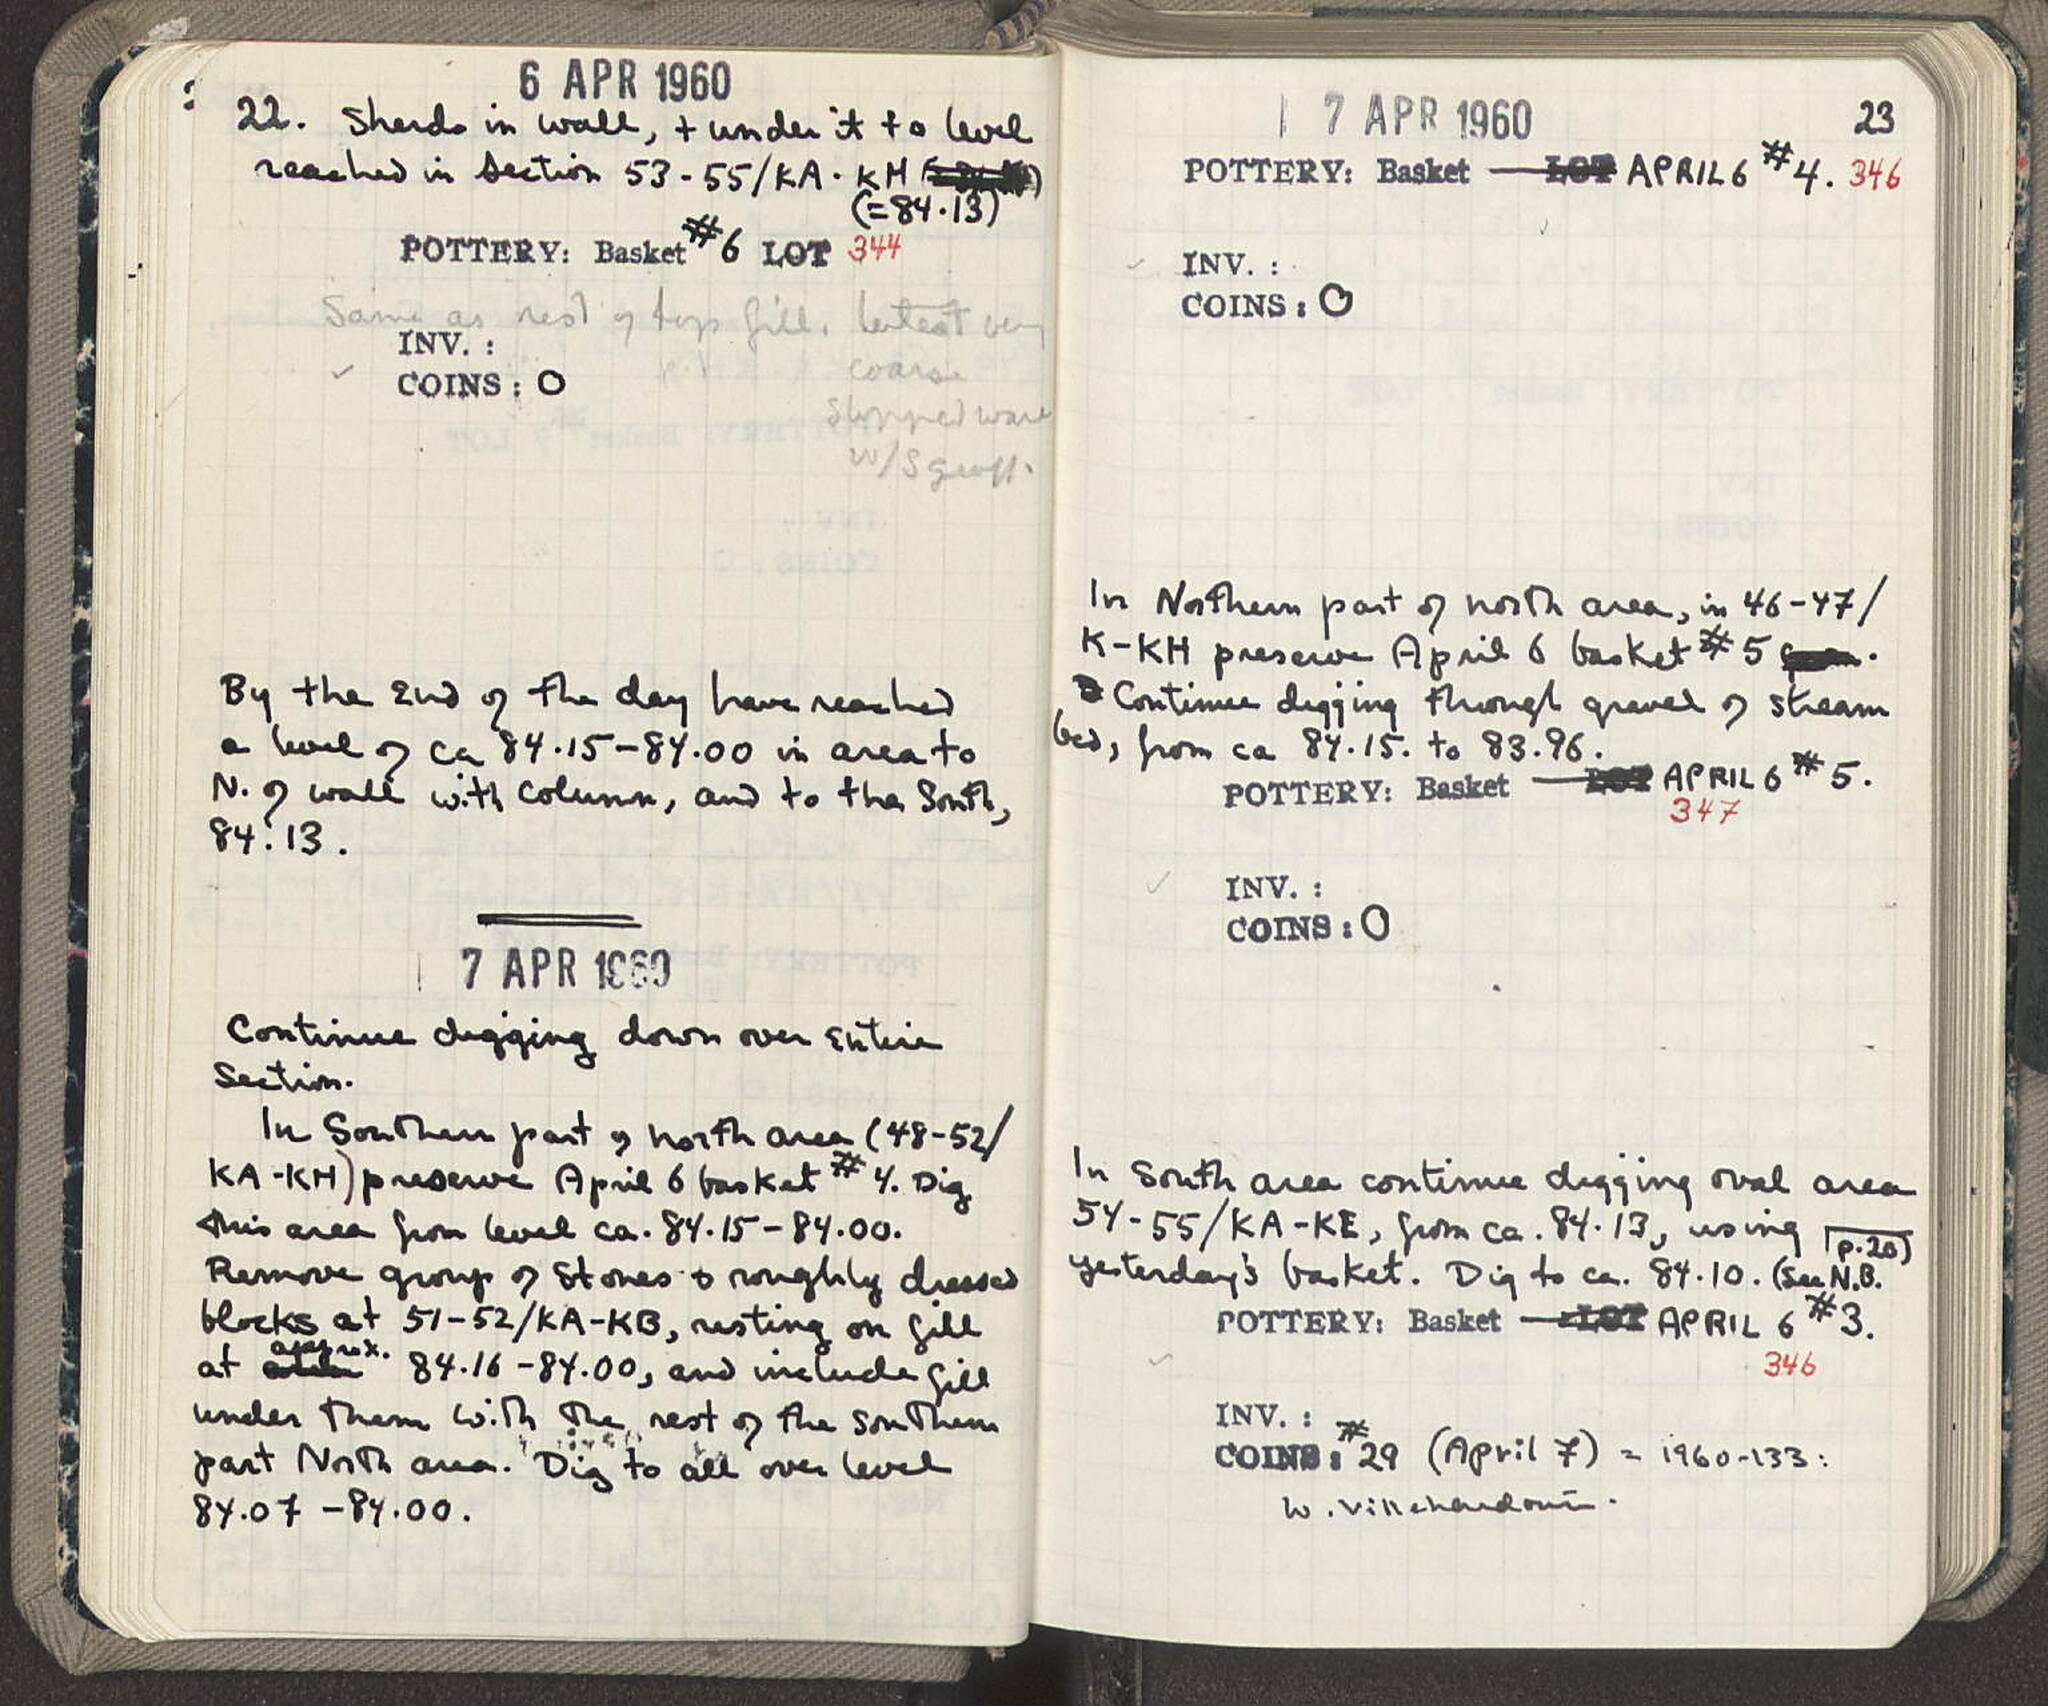 6 APR 1960
22. Sherds in wall, + under it to level
reached in Section 53-55/KA-KH
(=84.13)
POTTERY: Basket #6 LOT 344
Same as rest of top fill. Latest very
coarse
slopped ware
w/Sgraff.
INV. :
COINS: 0
By the End of the day have reached
a level of ca 84.15-84.00 in area to
N. of wall with column, and to the South,
84.13.
7 APR 1960
Continue digging down over Entire
Section.
In Southern part of north area (48-52/
KA-KH) preserve April 6 basket #4. Dig
this area from level ca. 84.15-84.00.
Remove group of Stones & roughly dressed
blocks at 51-52/KA-KB, resting on fill
at approx. 84.16-84.00, and include fill
under them with the rest of the Southern
part North area. Dig to all over level
84.07-84.00.
7 APR 1960
23
POTTERY: Basket — LOT APRIL 6 #4. 346
INV. :
COINS: 0
In Northern part of north area, in 46-47/
K-KH preserve April 6 basket #5.
Continue digging through gravel of stream
bed, from ca 84.15. to 83.96.
POTTERY: Basket — LOT APRIL 6 #5.
347
INV. :
COINS: 0
In South area continue digging oval area
54-55/KA-KE, from ca. 84.13, using
yesterday's basket. Dig to ca. 84.10. (See N.B.
p.20)
POTTERY: Basket — LOT APRIL 6 #3.
346
INV. :
COINS: #29 (April 7) = 1960-133:
W. Villehardouin.